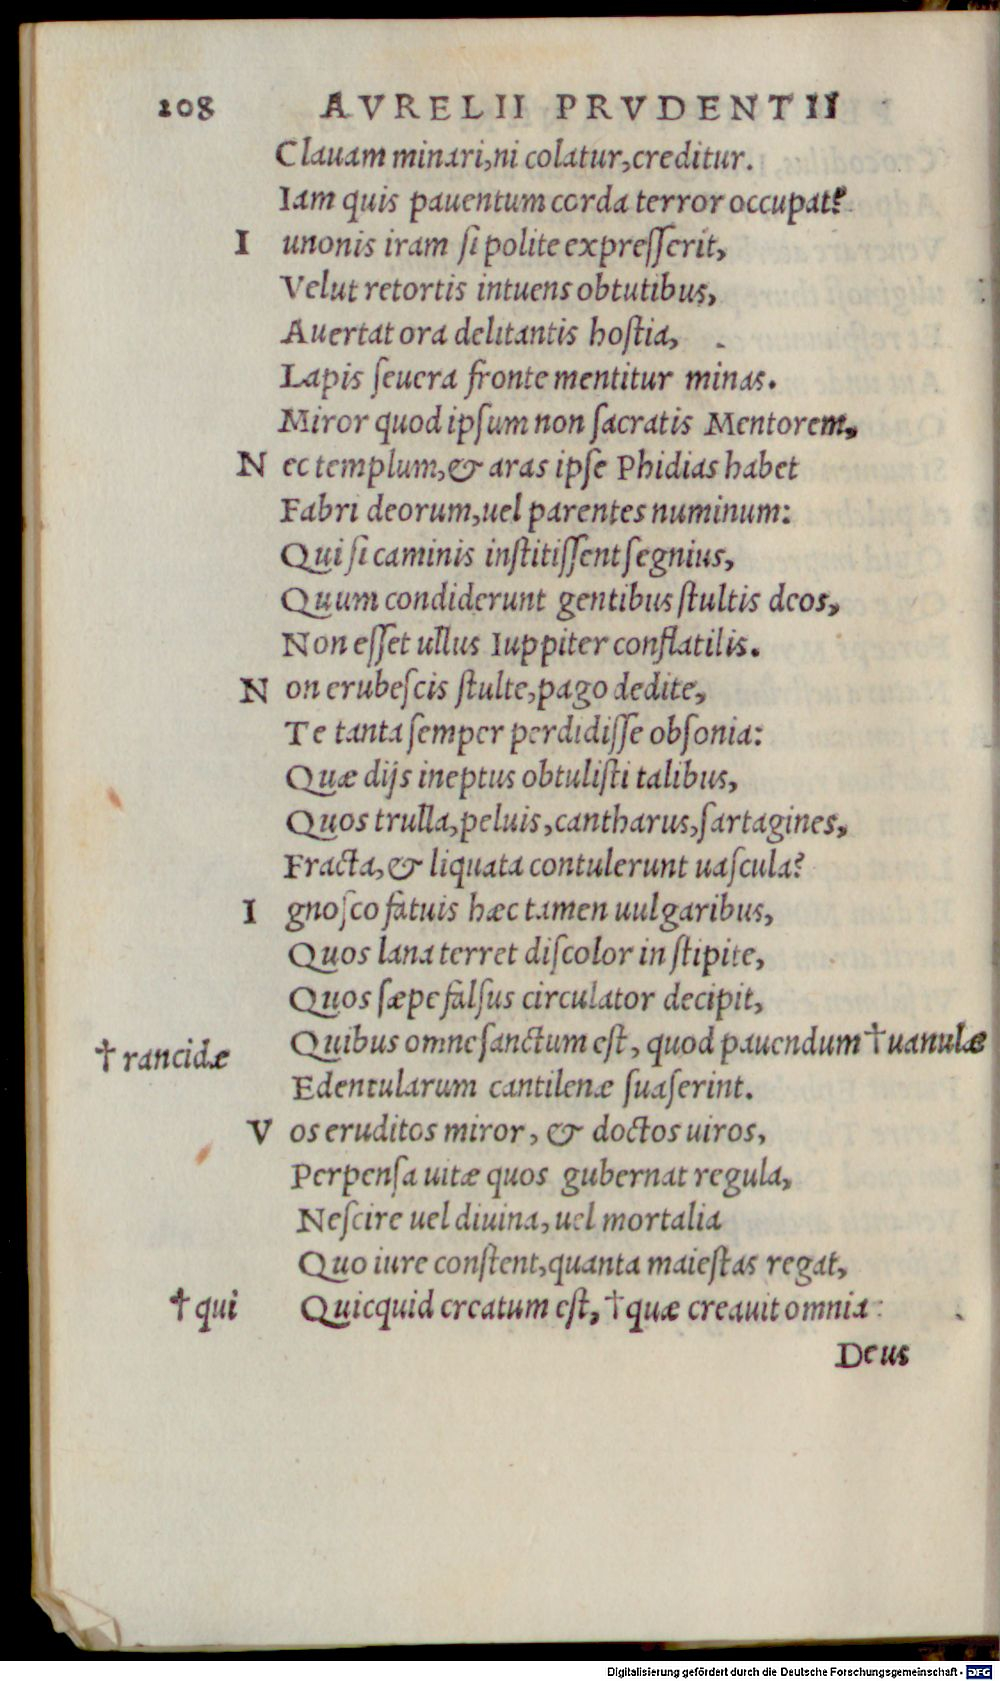 108 AVRELII PRVDENTII
Clauam minari,ni colatur,creditur.
Iam quis pauentum corda terror occupat?
I unonis iram si polite expresserit,
Velut retortis intuens obtutibus,
Auertat ora delitantis hostia,
Lapis seuera fronte mentitur minas.
Miror quod ipsum non sacratis Mentorem,
N ec templum,& aras ipse Phidias habet
Fabri deorum,uel parentes numinum:
Qui si caminis institissent segnius,
Quum condiderunt gentibus stultis deos,
Non esset ullus Iuppiter conflatilis.
N on erubescis stulte,pago dedite,
Te tanta semper perdidisse obsonia:
Quæ dijs ineptus obtulisti talibus,
Quos trulla,peluis,cantharus,sartagines,
Fracta,& liquata contulerunt uascula?
I gnosco fatuis hæc tamen uulgaribus,
Quos lana terret discolor in stipite,
Quos sæpe falsus circulator decipit,
†rancidæ Quibus omne sanctum est, quod pauendum †uanulæ
Edentularum cantilenæ suaserint.
V os eruditos miror, & doctos uiros,
Perpensa uitæ quos gubernat regula,
Nescire uel diuina, uel mortalia
Quo iure constent,quanta maiestas regat,
†qui Quicquid creatum est, †quæ creauit omnia:
Deus
Digitalisierung gefördert durch die Deutsche Forschungsgemeinschaft - DFG